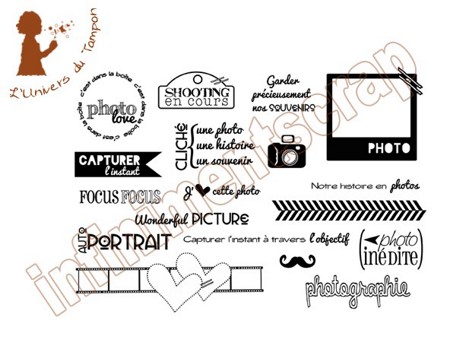 L'Univers du Tampon
c'est dans la boîte c'est dans la boîte c'est dans la boîte c'est dans la boîte
photo
love
SHOOTING
en cours
Garder
précieusement
nos SOUVENIRS
PHOTO
CLICHÉ
une photo
une histoire
un souvenir
CAPTURER
l'instant
FOCUS FOCUS
J' cette photo
Notre histoire en photos
Wonderful PICTURE
AUTO
PORTRAIT
Capturer l'instant à travers l'objectif
photo
inédite
photographie
infinimentscrap